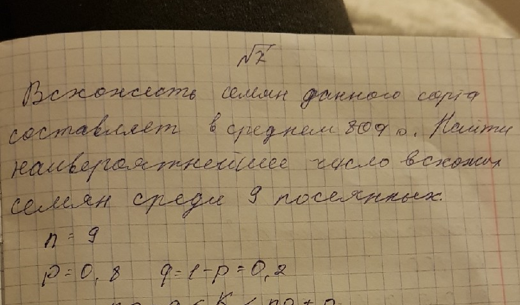 №7
Всхожесть семян данного сорта
составляет в среднем 80%. Найти
наивероятнейшее число всхожих
семян среди 9 посеянных.
n = 9
p = 0,8 q = 1 - p = 0,2
np - q ≤ K ≤ np + p